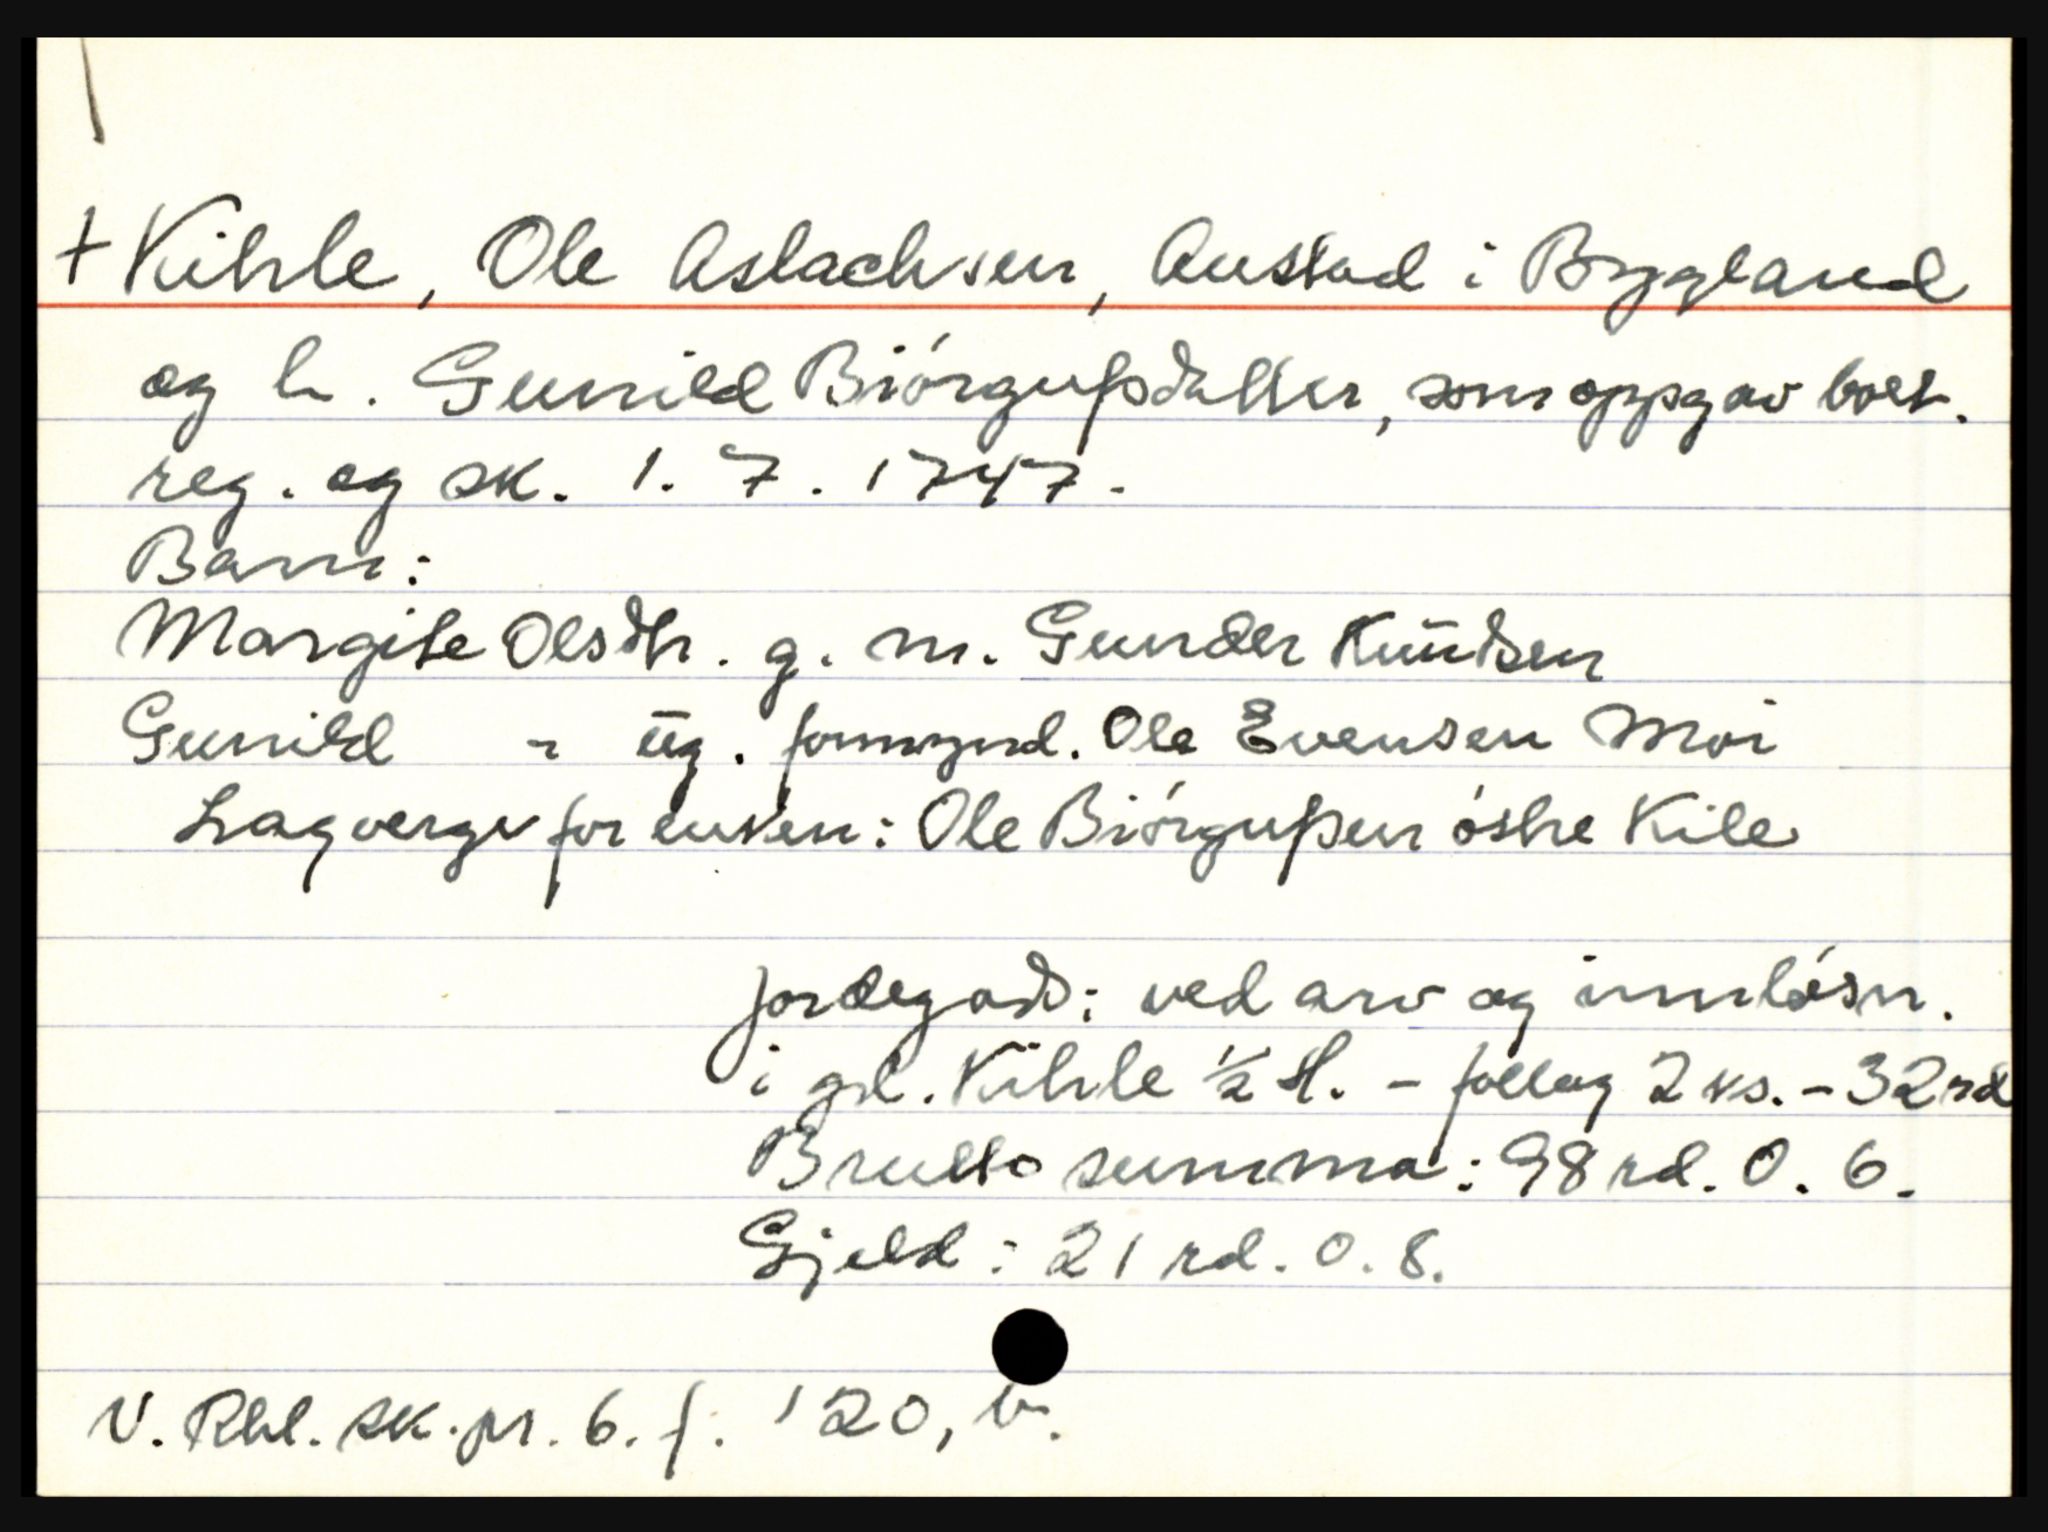 + Kihrle, Ole Aslachsen, Austad i Bygland
og h. Gunild Biórgufsdatter, som oppgav boet.
reg. og sk. 1. 7. 1747.
Barn:
Margite Olsdtr. g. m. Gunder Knudsen
Gunild " ug. formynd. Ole Evensen Moi
Lagverge for enken: Ole Biórgufsen óstre Kile
Jordegods: ved arv og innlósn.
i gd. Kihrle ½ H. - follag 2 ks. - 32 rd
Brutto summa: 98 rd. 0. 6.
Gjeld: 21 rd. 0. 8.
V. Rbl. sk. pr. 6. f. 120, b.